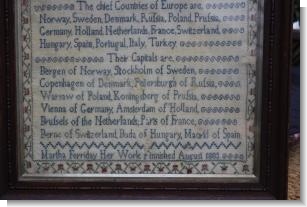 The chief Countries of Europe are
Norway, Sweden, Denmark, Rufsia, Poland, Prufsia,
Germany, Holland, Netherlands, France, Switzerland,
Hungary, Spain, Portugal, Italy, Turkey
Their Capitals are
Bergen of Norway, Stockholm of Sweden,
Copenhagen of Denmark, Petersburgh of Rufsia,
Warsaw of Poland, Koningsberg of Prufsia,
Vienna of Germany, Amsterdam of Holland,
Brufsels of the Netherlands, Paris of France,
Berne of Switzerland, Buda of Hungary, of Spain
Martha Ferriday Her Work Finnished August